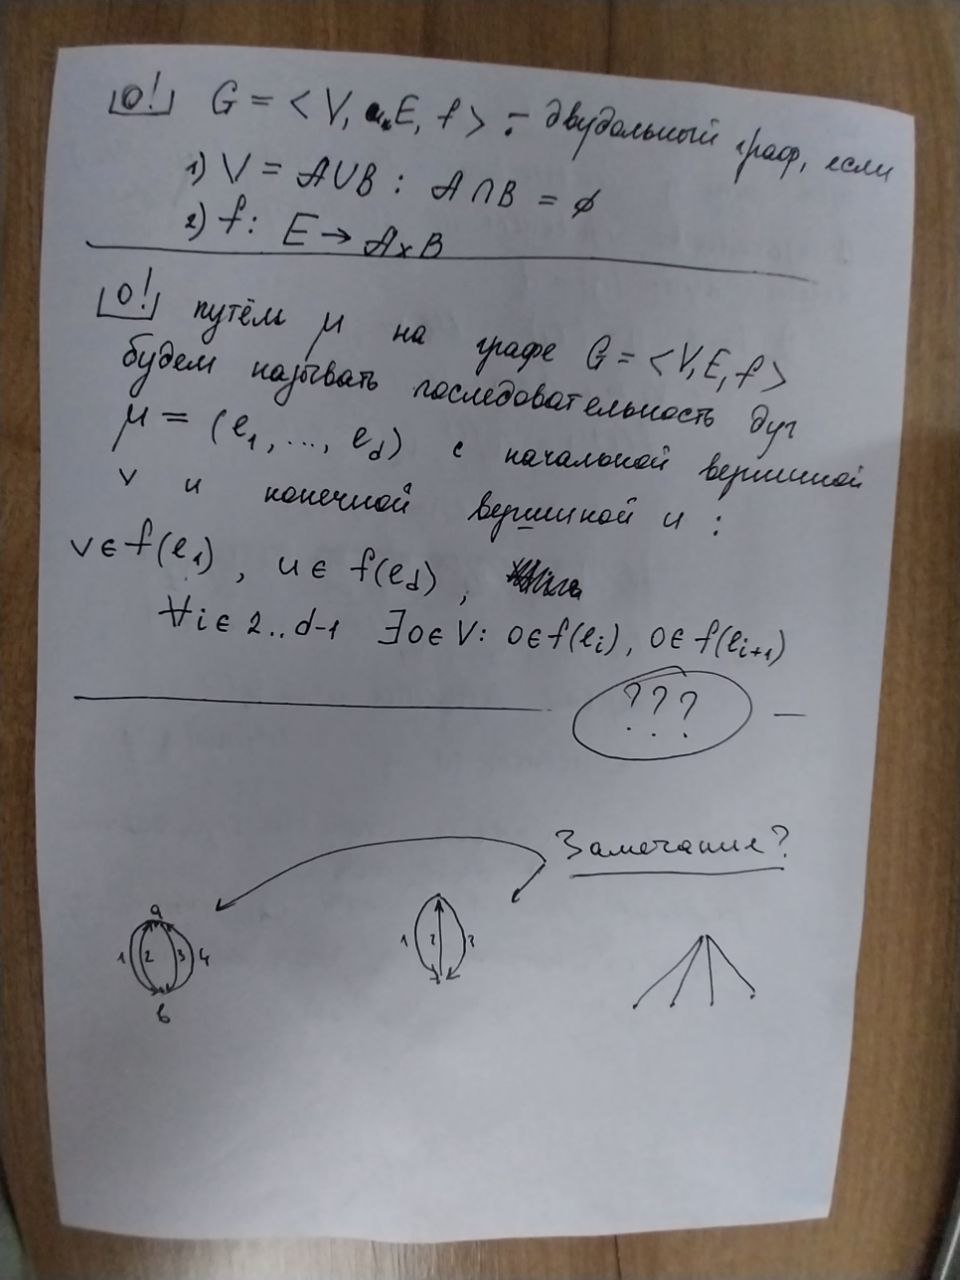 О! G = < V, E, f > :- двудольный граф, если
1) V = A∪B : A∩B = ∅
2) f: E → A×B
О! путём μ на графе G = <V, E, f>
будем называть последовательность дуг
μ = (e₁, ..., e_d) с начальной вершиной
v и конечной вершиной u :
v ∈ f(e₁), u ∈ f(e_d),
∀i ∈ 2..d-1 ∃o ∈ V: o ∈ f(e_i), o ∈ f(e_{i+1})
???
Замечание?
a
1 2 3 4
b
1 2 3